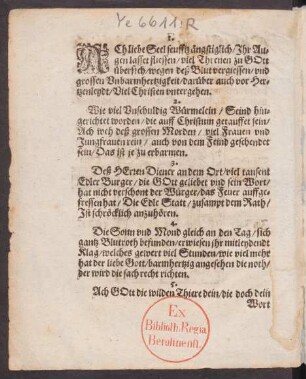 Ye 6611 R
1.
ACh liebe Seel seufftz ängstiglich / Ihr Au-
gen lasset fliessen / viel Threnen zu GOtt
übersich / wegen deß Blutvergiessen / vnd
grossen Vnbarmhertzigkeit / darüber auch vor Her-
tzenleydt / Viel Christen vntergehen.
2.
Wie viel Vnschuldig Würmelein / Seind hin-
gerichtet worden / die auff Christum getauffet sein /
Ach weh deß grossen Morden / viel Frauen vnd
Jungfrauen rein / auch von dem Feind geschendet
sein / Das ist je zu erbarmen.
3.
Deß HErren Diener an dem Ort / viel tausent
Edler Burger / die GOtt geliebet vnd sein Wort /
hat nicht verschont der Würger / das Feuer auffge-
fressen hat / Die Edle Statt / zusampt dem Rath /
Ist schröcklich anzuhören.
4.
Die Sonn vnd Mond gleich an den Tag / sich
gantz Blutroth befunden / erwiesen jhr mitleydendt
Klag / welches gewert viel Stunden / wie viel mehr
hat der liebe Gott / barmhertzig angesehen die noth /
der wird die sach recht richten.
5.
Ach GOtt die wilden Thiere dein / die doch dein
Wort
Ex
Biblioth. Regia
Berolinensi.